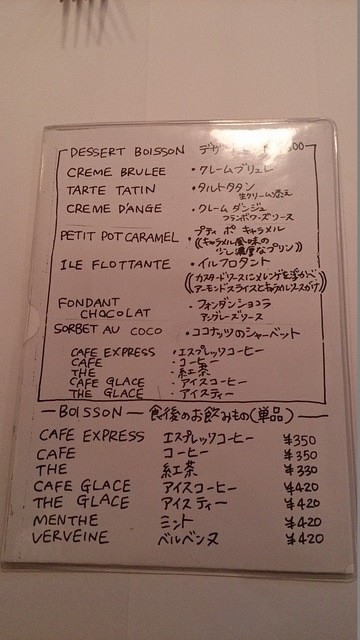 DESSERT BOISSON デザ
CREME BRULEE ・クレームブリュレ
TARTE TATIN ・タルトタタン
生クリーム添え
CREME D'ANGE ・クレームダンジュ
フランボワーズソース
PETIT POT CARAMEL ・プティ ポ キャラメル
((キャラメル風味の
少し濃厚なプリン))
ILE FLOTTANTE ・イルフロタント
((カスタードソースにメレンゲを浮かべ
アーモンドスライスとキャラメルソースがけ))
FONDANT CHOCOLAT ・フォンダンショコラ
アングレーズソース
SORBET AU COCO ・ココナッツのシャーベット
CAFE EXPRESS ・エスプレッソコーヒー
CAFE ・コーヒー
THE ・紅茶
CAFE GLACE ・アイスコーヒー
THE GLACE ・アイスティー
—BOISSON— 食後のお飲みもの(単品)—
CAFE EXPRESS エスプレッソコーヒー ¥350
CAFE コーヒー ¥350
THE 紅茶 ¥330
CAFE GLACE アイスコーヒー ¥420
THE GLACE アイスティー ¥420
MENTHE ミント ¥420
VERVEINE ベルベンヌ ¥420